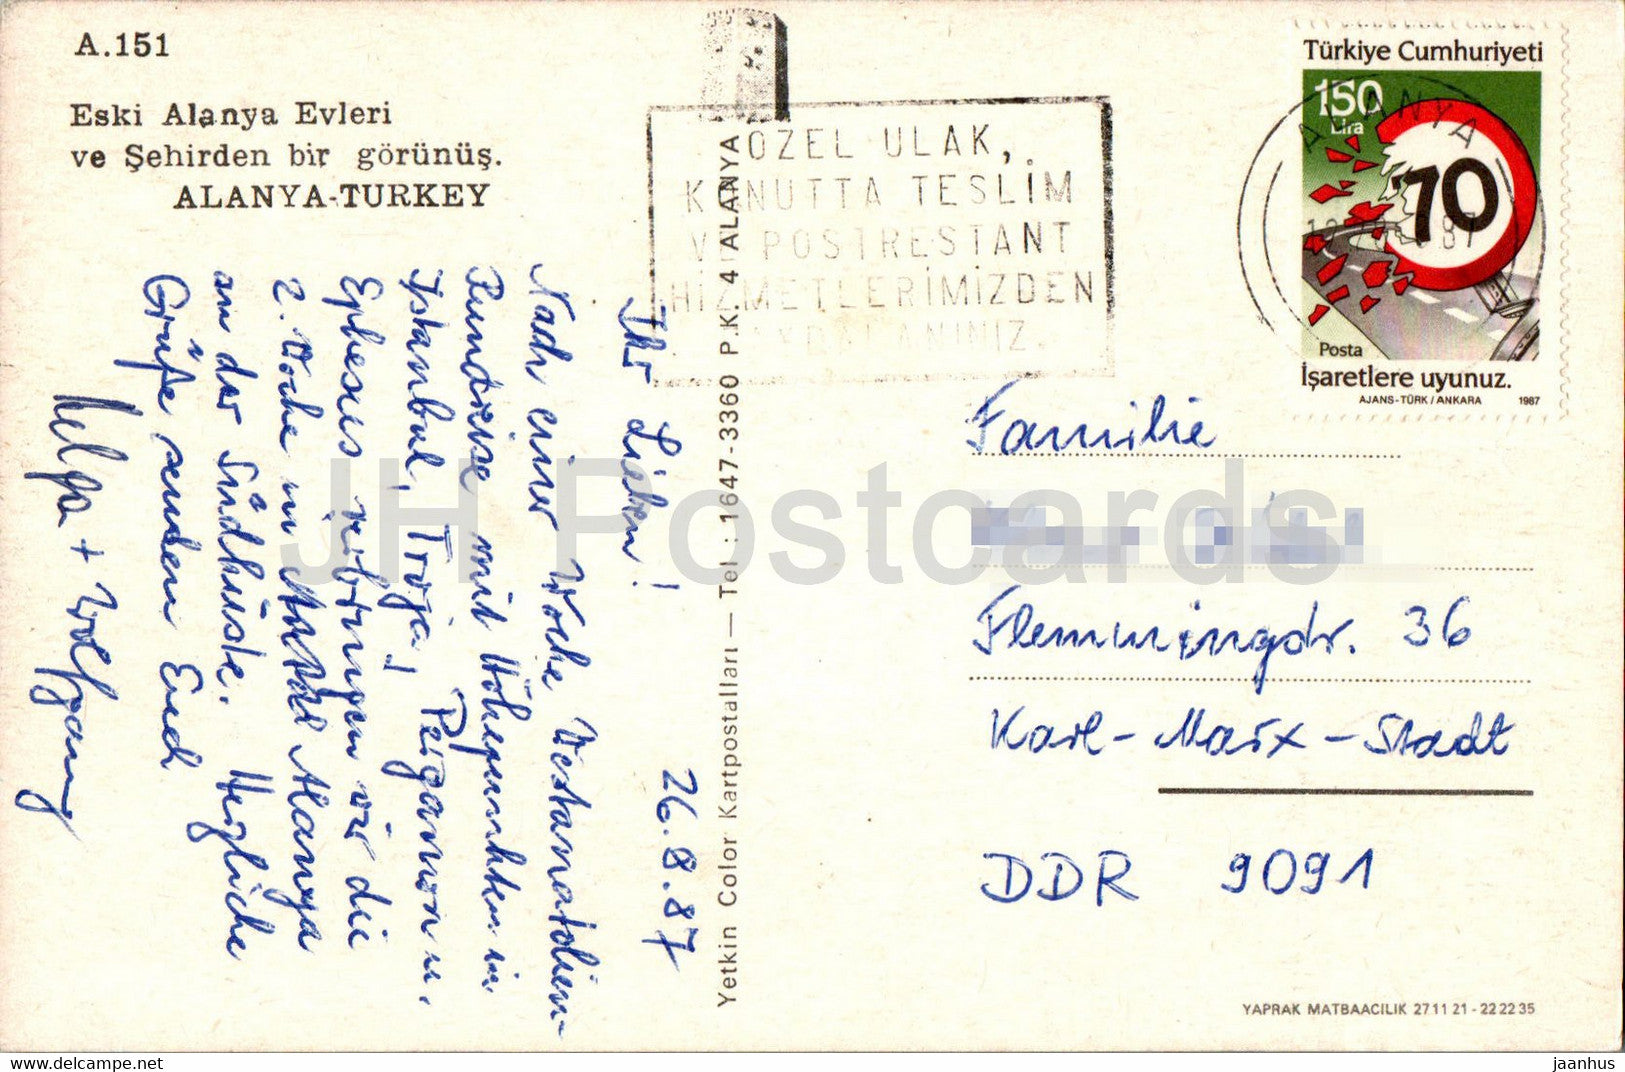 A.151
Eski Alanya Evleri
ve Şehirden bir görünüş.
ALANYA-TURKEY
ÖZEL ULAK,
KONUTTA TESLİM
VE POSTRESTANT
HİZMETLERİMİZDEN
YARARLANINIZ.
Türkiye Cumhuriyeti
150
Lira
70
Posta
İşaretlere uyunuz.
AJANS-TÜRK / ANKARA 1987
ALANYA
87
26.8.87
Ihr Lieben!
Nach einer Woche Westanatolien-
Rundreise mit Höhepunkten in
Istanbul, Troja, Pergamon u.
Ephesus verbringen wir die
2. Woche in Alanya
an der Südküste. Herzliche
Grüße senden Euch
Helga + Wolfgang
Yetkin Color Kartpostalları — Tel : 1647-3360 P.K. 4 ALANYA
Familie
Flemmingstr. 36
Karl-Marx-Stadt
DDR 9091
YAPRAK MATBAACILIK 27 11 21 - 22 22 35
JH Postcards
www.delcampe.net
jaanhus